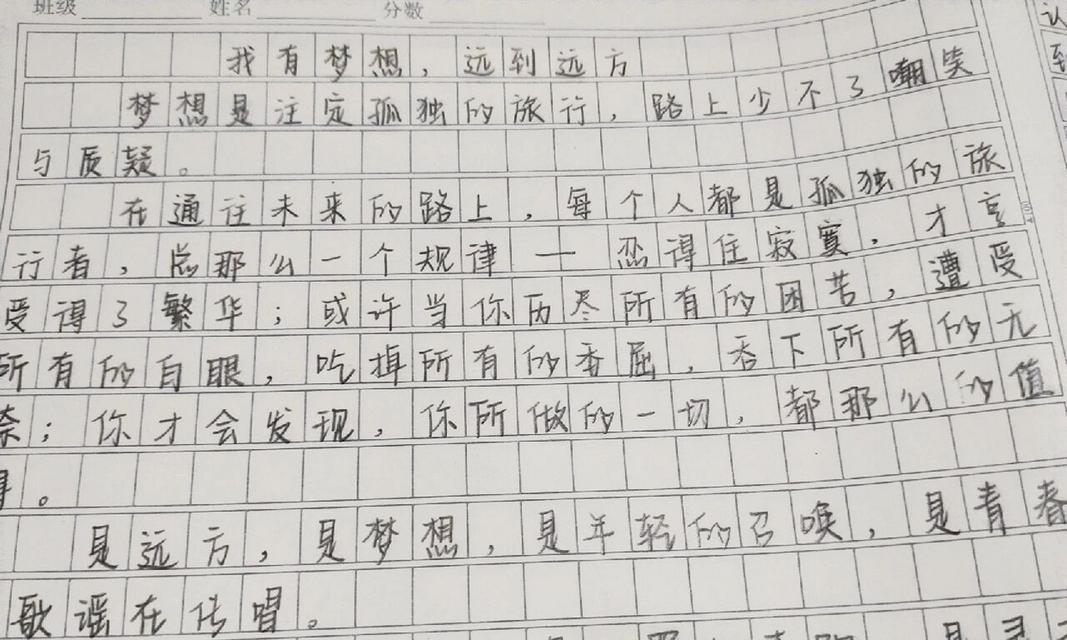 班级 姓名 分数
我有梦想，远到远方
梦想是注定孤独的旅行，路上少不了嘲笑
与质疑。
在通往未来的路上，每个人都是孤独的旅
行者，总那么一个规律——忍得住寂寞，才享
受得了繁华；或许当你历尽所有的困苦，遭受
所有的白眼，吃掉所有的委屈，吞下所有的无
奈；你才会发现，你所做的一切，都那么的值
得。
是远方，是梦想，是年轻的召唤，是青春
歌谣在传唱。